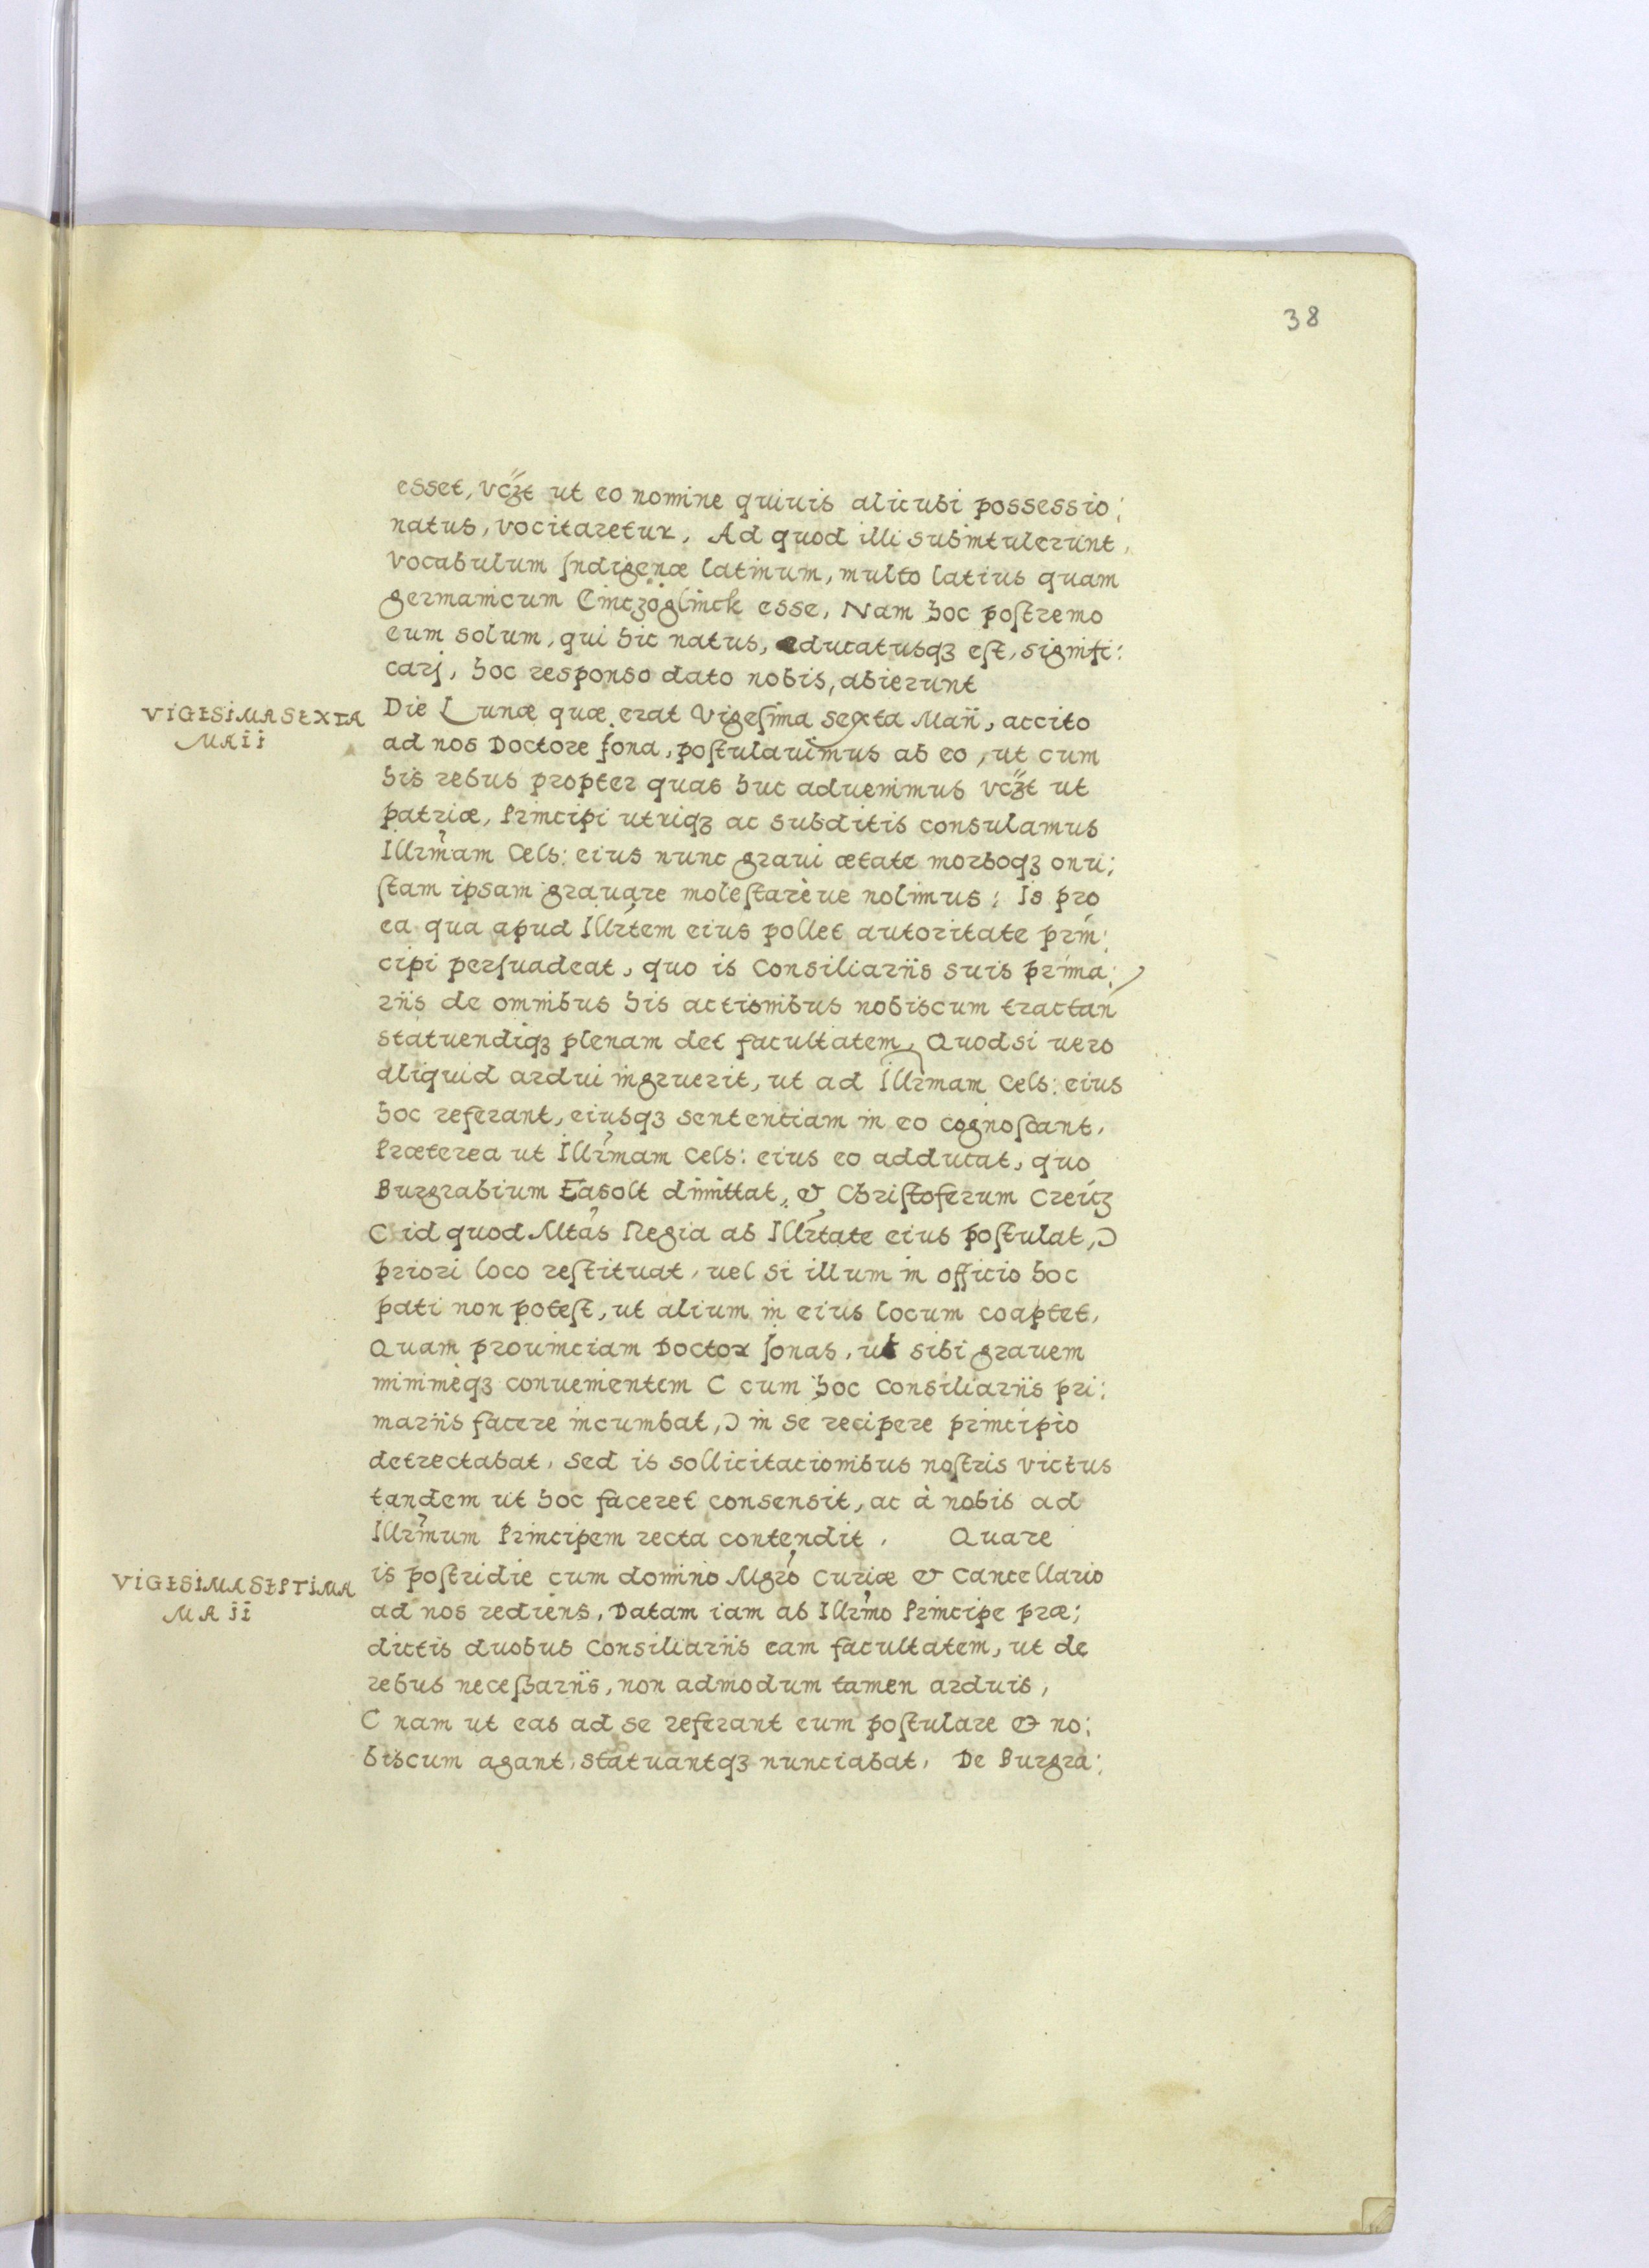 38
esset, vczt ut eo nomine quiuis alicubi possessio:
natus, vocitaretur. Ad quod illi subintulerunt,
vocabulum Indigenæ latinum, multo latius quam
germanicum Eintzöglinck esse, Nam hoc postremo
eum solum, qui hic natus, educatusqȝ est, signifi:
carj, hoc responso dato nobis, abierunt
VIGESIMA SEXTA
MAII
Die Lunæ quæ erat Vigesima sexta Maii, accito
ad nos Doctore Jona, postulauimus ab eo, ut cum
his rebus propter quas huc aduenimus vczt ut
patriæ, Principi utriqȝ ac subditis consulamus
Illrmam Cels: eius nunc graui ætate morboqȝ onu:
stam ipsam grauare molestarèue nolimus: Is pro
ea qua apud Illrtem eius pollet autoritate prin:
cipi persuadeat, quo is Consiliariis suis prima:
riis de omnibus his actionibus nobiscum tractan
statuendiqȝ plenam det facultatem, Quodsi uero
aliquid ardui ingruerit, ut ad Illrmam Cels: eius
hoc referant, eiusqȝ sententiam in eo cognoscant,
Præterea ut Illrmam Cels: eius eo adducat, quo
Burgrabium Easolt dimittat, & Christoferum Creutz
( id quod Mtas Regia ab Illrtate eius postulat, )
priori loco restituat, uel si illum in officio hoc
pati non potest, ut alium in eius locum coaptet,
Quam prouinciam Doctor Jonas, ut sibi grauem
minimèqȝ conuenientem ( cum hoc Consiliariis pri:
mariis facere incumbat, ) in se recipere principio
detrectabat, sed is sollicitationibus nostris victus
tandem ut hoc faceret consensit, ac à nobis ad
Illrmum Principem recta contendit. Quare
VIGESIMA SEPTIMA
MAII
is postridie cum domino Mgro Curiæ & Cancellario
ad nos rediens, Datam iam ab Illrmo Principe præ:
dictis duobus Consiliariis eam facultatem, ut de
rebus necessariis, non admodum tamen arduis,
( nam ut eas ad se referant eum postulare & no:
biscum agant, statuantqȝ nunciabat, De Burgra: